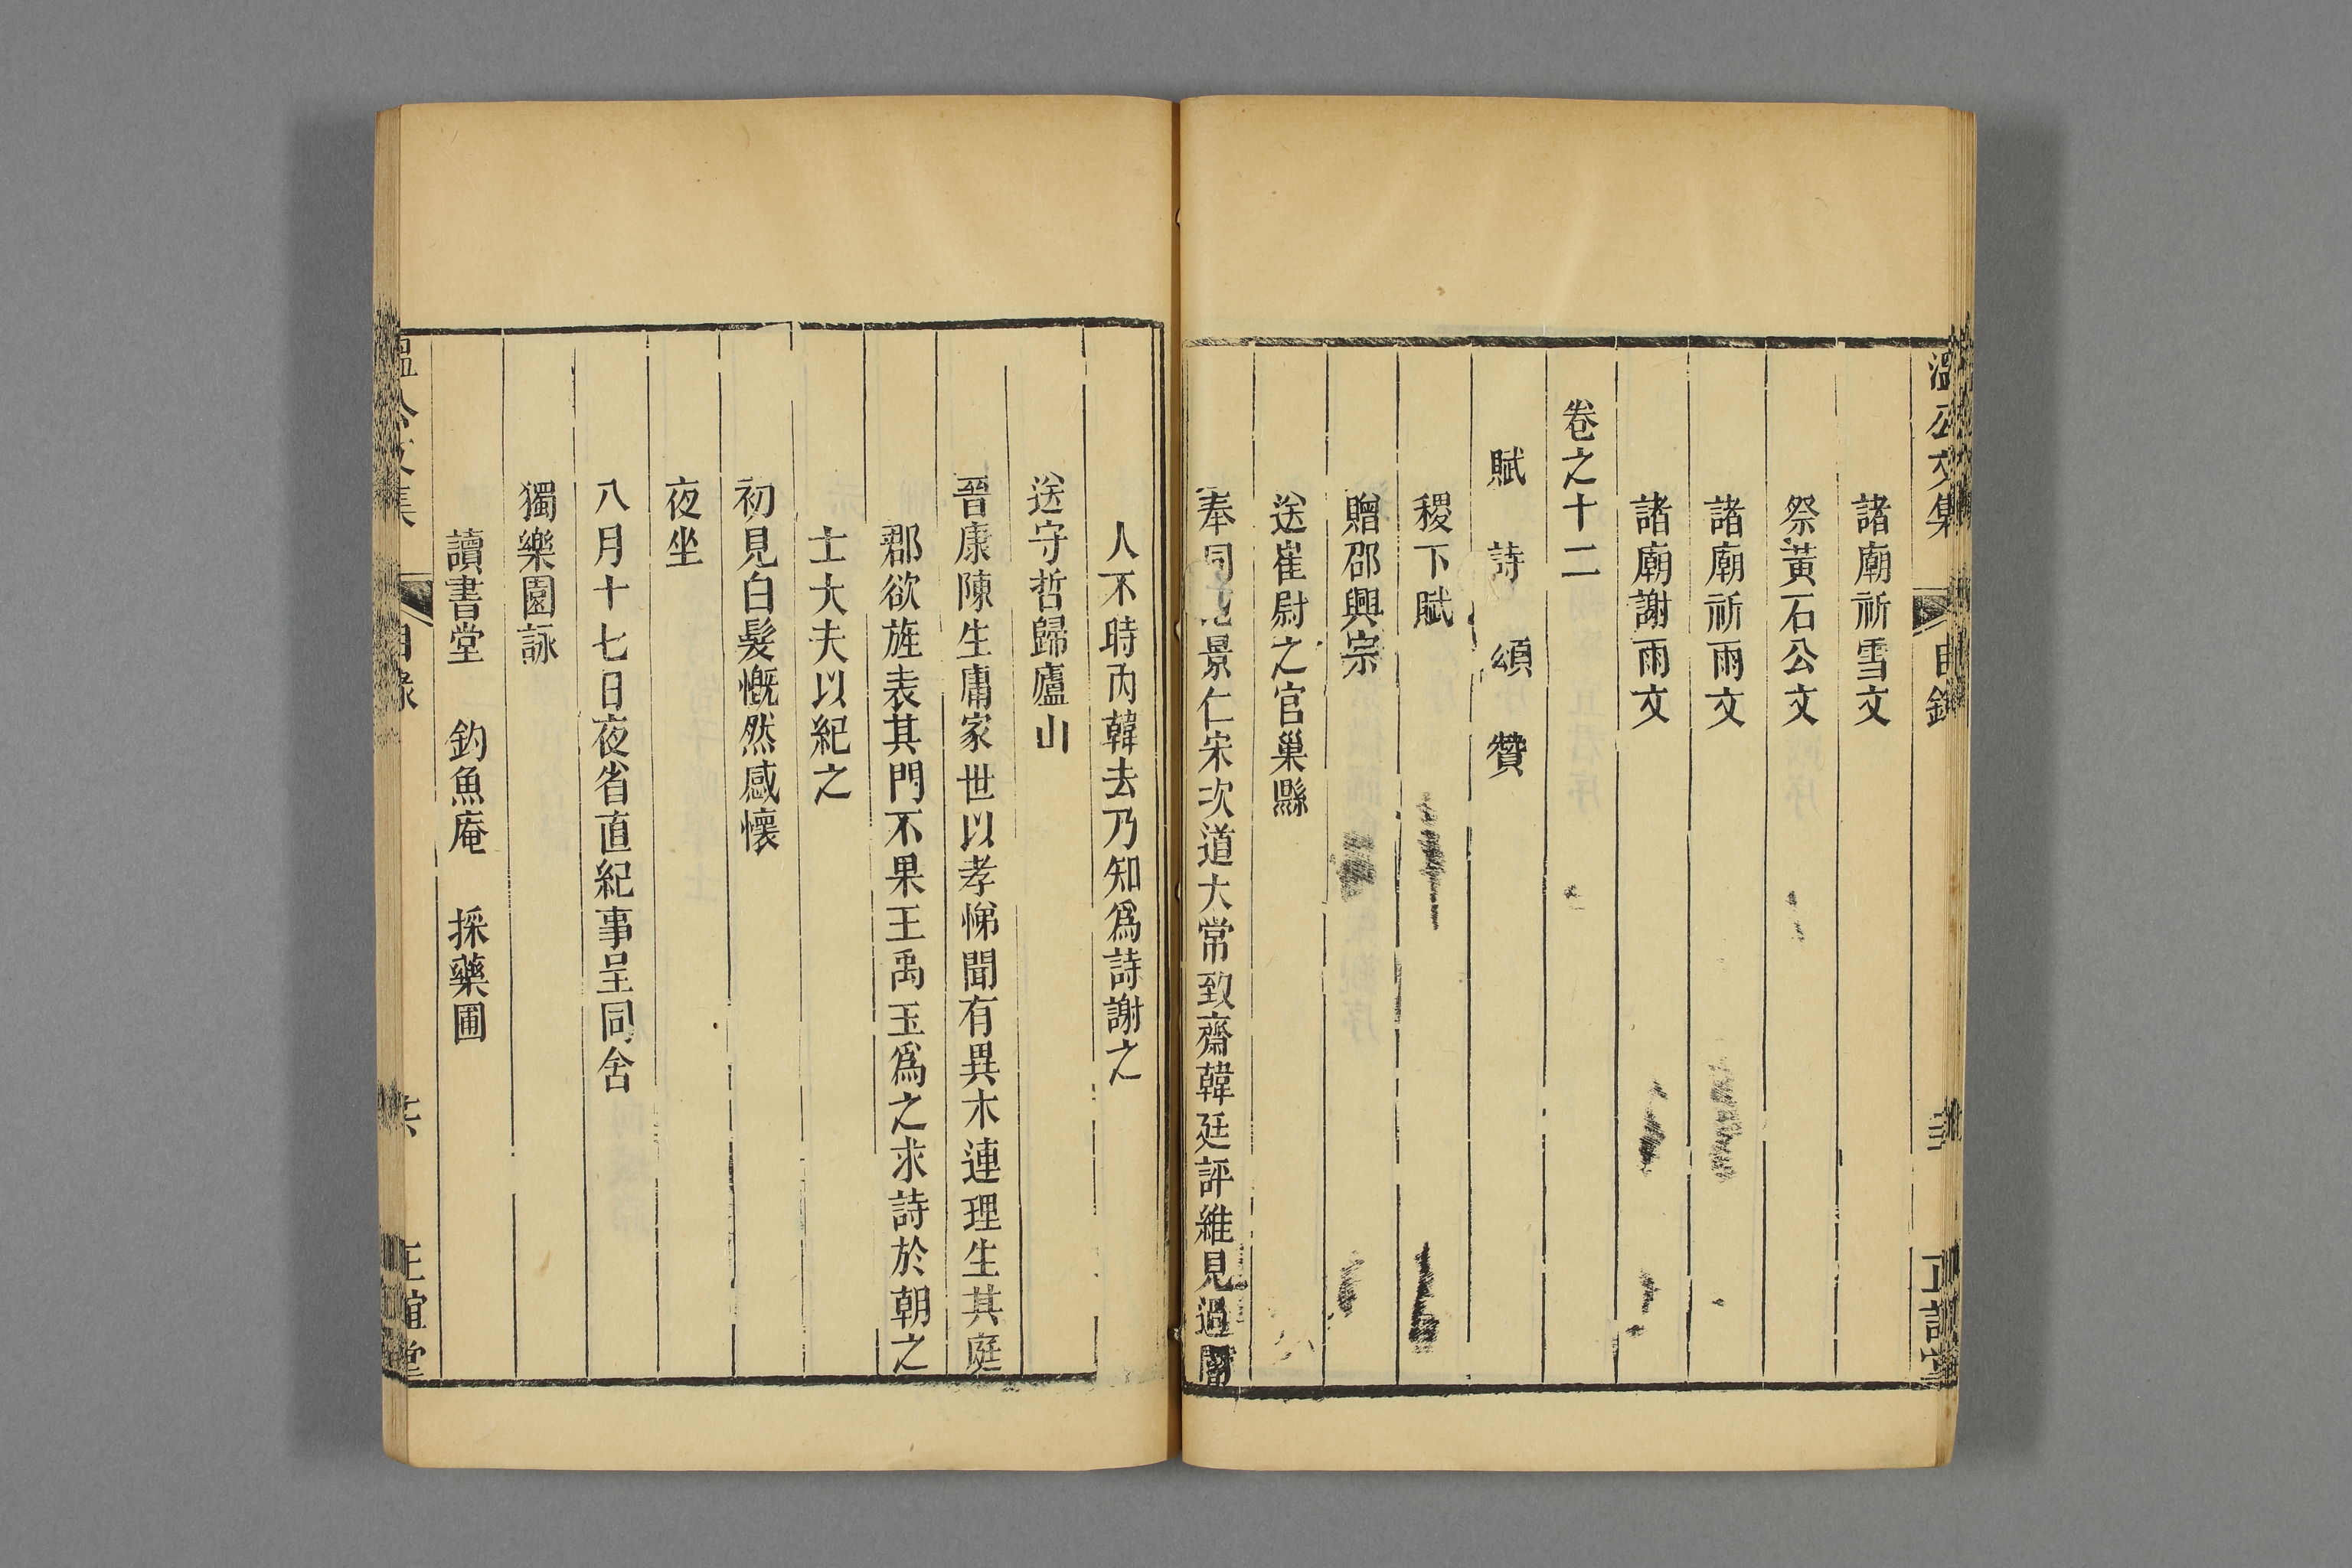 諸廟祈雪文
祭黃石公文
諸廟祈雨文
諸廟謝雨文
卷之十二
賦 詩 頌 贊
稷下賦
贈邵興宗
送崔尉之官巢縣
奉同 景仁宋次道大常致齋韓廷評維見過
人不時內韓去乃知爲詩謝之
送守哲歸廬山
晉康陳生庸家世以孝悌聞有異木連理生其庭
郡欲旌表其門不果王禹玉爲之求詩於朝之
士大夫以紀之
初見白髮慨然感懷
夜坐
八月十七日夜省直紀事呈同舍
獨樂園詠
讀書堂 釣魚庵 採藥圃